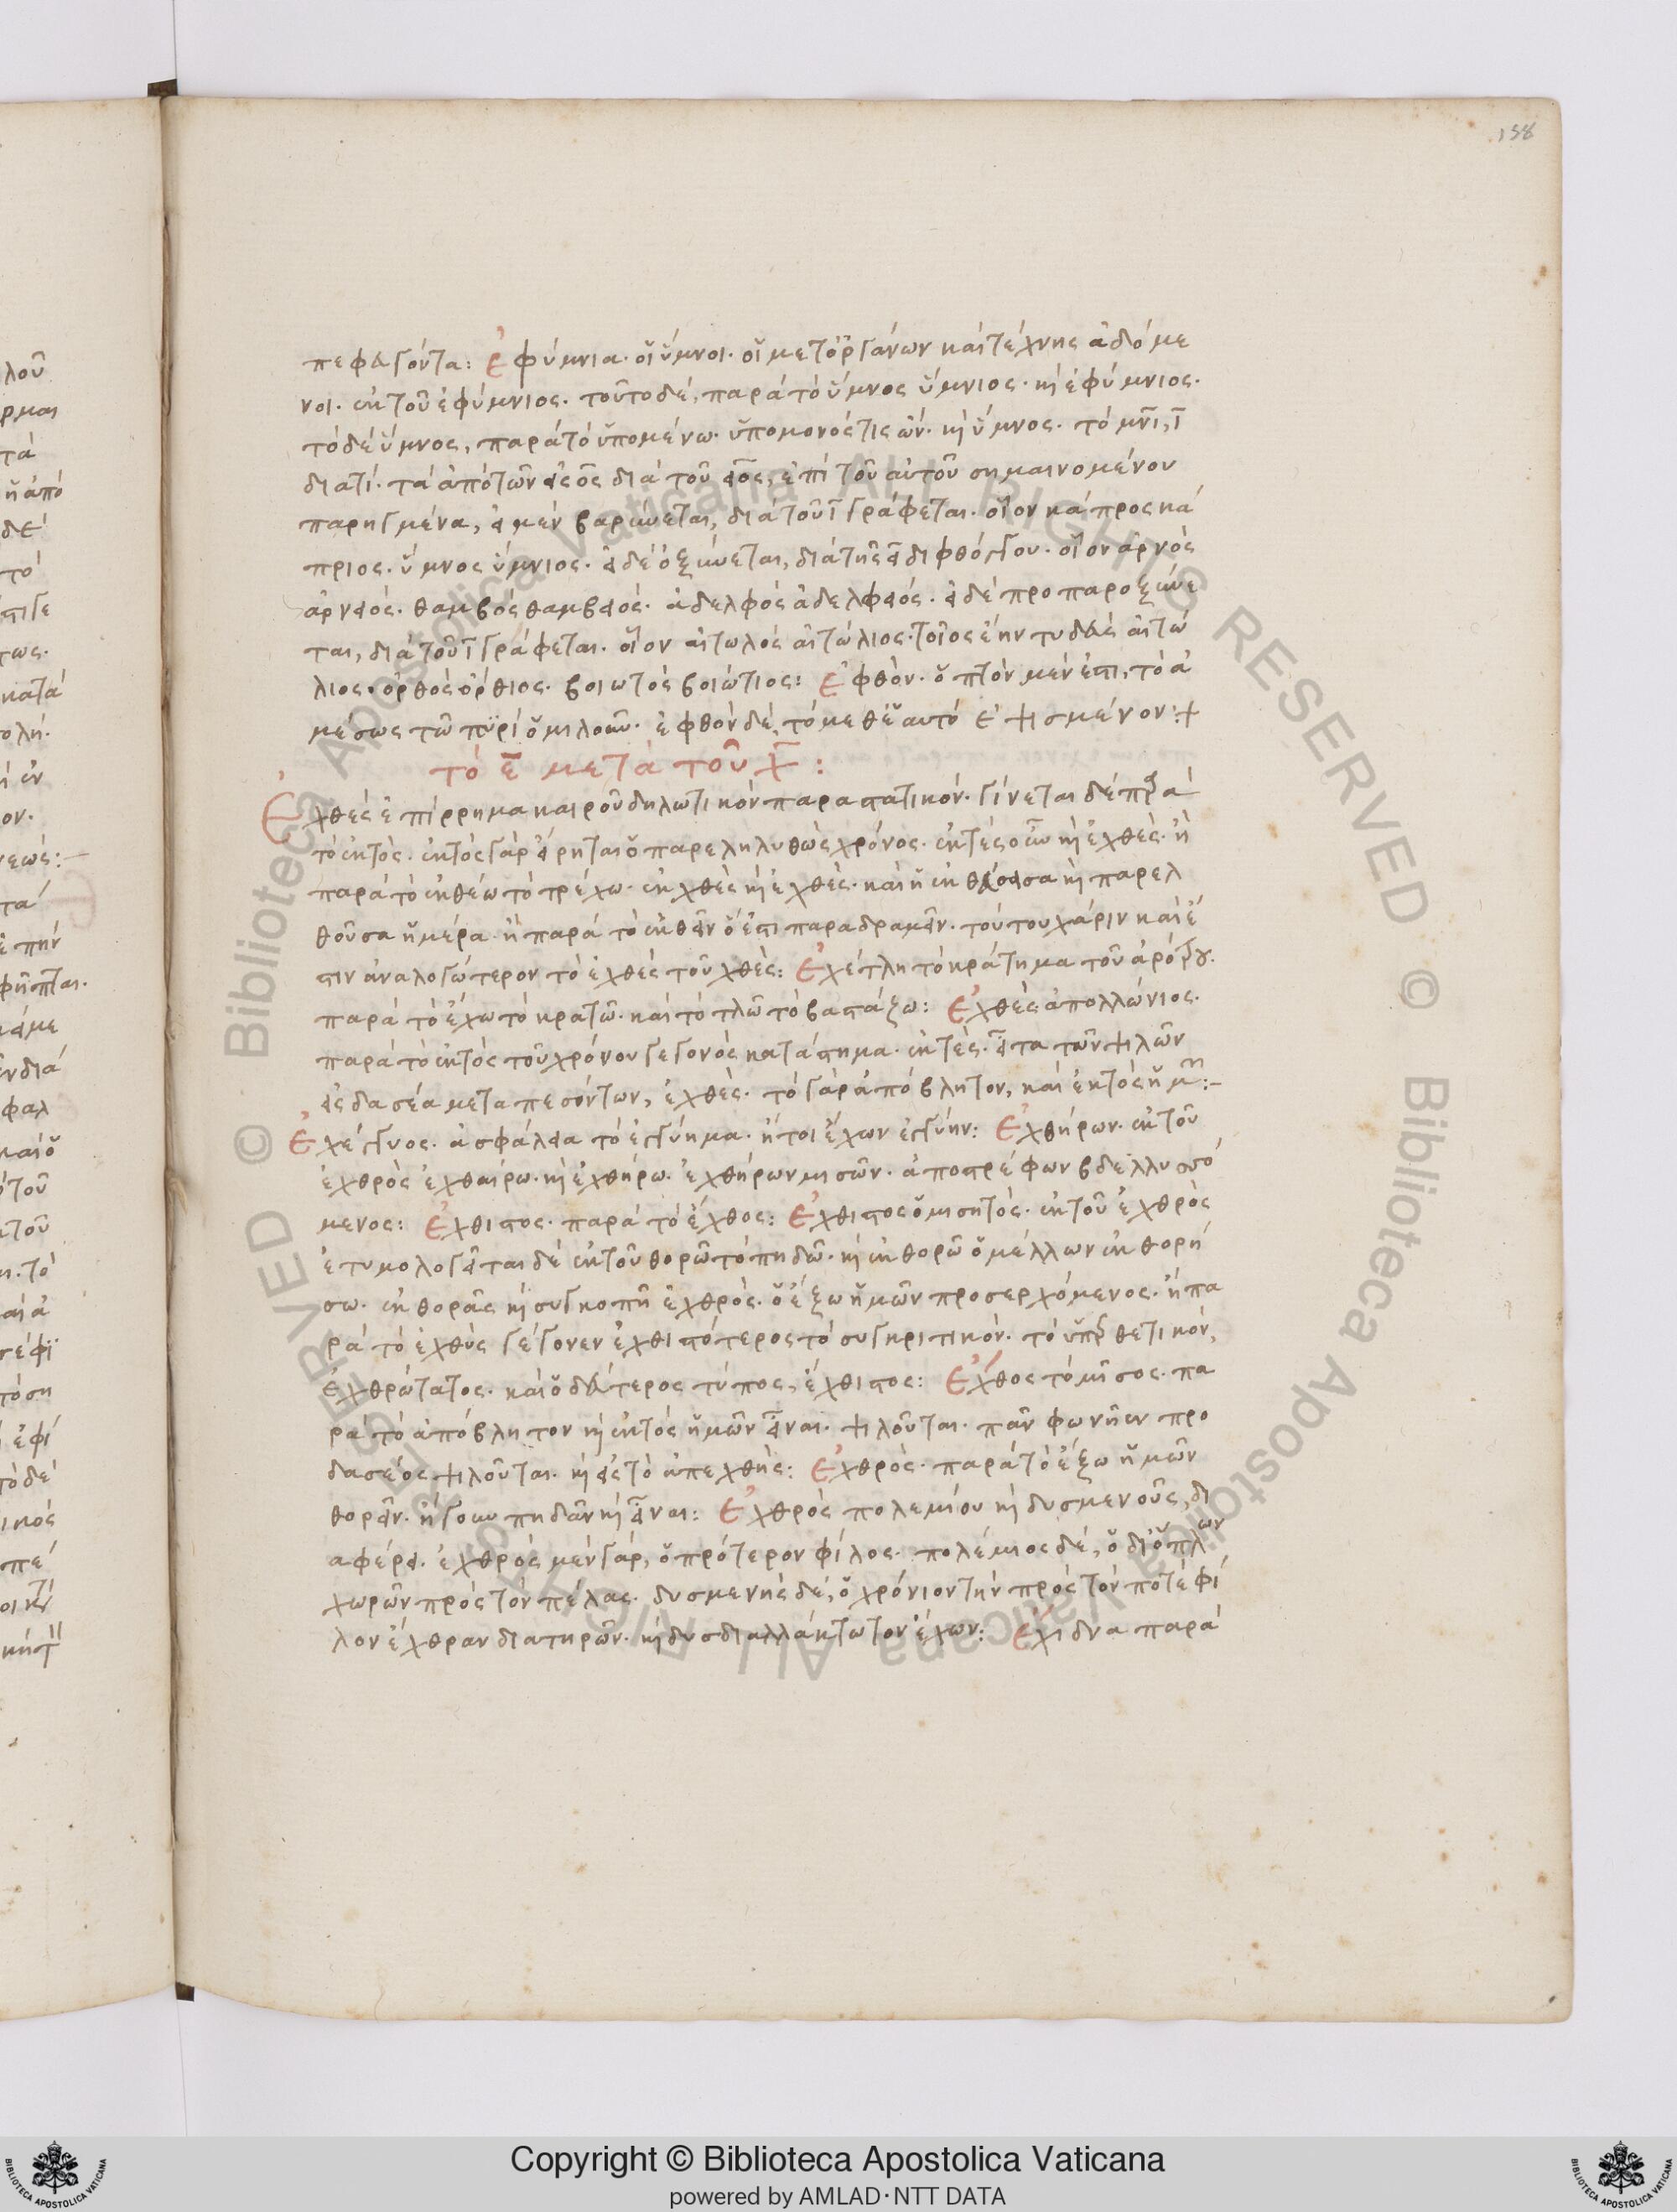 158
πεφευγόντα: Ἐφύμνια· οἱ ὕμνοι· οἱ μετ' ὀργάνων καὶ τέχνης ἀδόμε
νοι· ἐκ τοῦ ἐφύμνιος· τοῦτο δὲ, παρὰ τὸ ὕμνος ὕμνιος· κὶ ἐφύμνιος·
τὸ δὲ ὕμνος, παρὰ τὸ ὑπομένω· ὑπομονός τις ὤν· κὶ ὕμνος· τὸ μνῑ, ῑ
διατί· τὰ ἀπὸ τῶν εἰς ος διὰ τοῦ εἰος, ἐπὶ τοῦ αὐτοῦ σημαινομένου
παρηγμένα, εἰ μὲν βαρύνεται, διὰ τοῦ ῑ γράφεται· οἷον κάπρος κά
πριος· ὕμνος ὕμνιος· εἰ δὲ ὀξύνεται, διὰ τῆς ει διφθόγγου· οἷον ἀρνὸς
ἀρνειός· θαμβὸς θαμβειός· ἀδελφὸς ἀδελφειός· εἰ δὲ προπαροξύνε
ται, διὰ τοῦ ῑ γράφεται· οἷον αἰτωλὸς αἰτώλιος· τοῖος ἔην τυδεὺς αἰτώ
λιος· ὀρθὸς ὄρθιος· βοιωτὸς βοιώτιος: Ἐφθόν· ὀπτόν μέν ἐστι, τὸ ἀ
μέσως τῶ πυρὶ ὁμιλοῦν· ἐφθὸν δὲ, τὸ μεθ' ἑαυτὸ ἐψησμένον:+
τὸ ε̄ μετὰ τοῦ χ̄:
Ἐχθὲς ἐπίρρημα καιροῦ δηλωτικὸν παραστατικόν· γίνεται δὲ παρὰ
τὸ ἐκτός· ἐκτὸς γὰρ εἴρηται ὁ παρεληλυθὼς χρόνος· ἐκτές κὶ ἐχθές· ἢ
παρὰ τὸ ἐκθέω τὸ τρέχω· ἐκχθὲς κὶ ἐχθές· καὶ ἡ ἐκθέουσα κὶ παρελ
θοῦσα ἡμέρα· ἢ παρὰ τὸ ἐκθεῖν ὅ ἐστι παραδραμεῖν· τούτου χάριν καὶ ἔ
στιν ἀναλογώτερον τὸ ἐχθὲς τοῦ χθές: Ἐχέτλη τὸ κράτημα τοῦ ἀρότρου·
παρὰ τὸ ἔχω τὸ κρατῶ· καὶ τὸ τλῶ τὸ βαστάζω: Ἐχθὲς ἀπολλώνιος·
παρὰ τὸ ἐκτὸς τοῦ χρόνου γεγονὸς κατάστημα· ἐκτές· εἶτα τῶν ψιλῶν
εἰς δασέα μεταπεσόντων, ἐχθές· τὸ γὰρ ἀπόβλητον, καὶ ἐκτὸς ἡμῶν:-
Ἐχέγγυος· ἀσφάλεια τὸ ἐγγύημα· ἤτοι ἔχων ἐγγύην: Ἐχθήρων· ἐκ τοῦ
ἐχθρὸς ἐχθαίρω· κὶ ἐχθήρω· ἐχθήρων μισῶν· ἀποστρέφων βδελλυσσό
μενος: Ἔχθιστος· παρὰ τὸ ἔχθος: Ἔχθιστος ὁ μισητός· ἐκ τοῦ ἐχθρὸς
ἐτυμολογεῖται δὲ ἐκ τοῦ θορῶ τὸ πηδῶ· κὶ ἐκθορῶ ὁ μέλλων ἐκθορή
σω· ἐκθορὰς κὶ συγκοπῆ ἐχθρός· ὁ ἔξω ἡμῶν προσερχόμενος· ἢ πα
ρὰ τὸ ἐχθὺς γέγονεν ἐχθιστότερος τὸ συγκριτικόν· τὸ ὑπερθετικόν,
ἐχθρώτατος· καὶ ὁ δεύτερος τύπος, ἔχθιστος: Ἔχθος τὸ μῖσος· πα
ρὰ τὸ ἀπόβλητον κὶ ἐκτὸς ἡμῶν εἶναι· ψιλοῦται· πᾶν φωνῆεν προ
δασέος ψιλοῦται· κὶ εἰς τὸ ἀπεχθής: Ἐχθρός· παρὰ τὸ ἔξω ἡμῶν
θορεῖν· ἤγουν πηδᾶν κὶ εἶναι: Ἐχθρὸς πολεμίου κὶ δυσμενοῦς, δι
αφέρει· ἐχθρὸς μὲν γάρ, ὁ πρότερον φίλος· πολέμιος δὲ, ὁ δι' ὅπλων
χωρῶν πρὸς τὸν πέλας· δυσμενὴς δὲ, ὁ χρόνιον τὴν πρὸς τὸν ποτὲ φί
λον ἔχθραν διατηρῶν· κὶ δυσδιαλλάκτωτον ἔχων: Ἔχιδνα παρὰ
Copyright © Biblioteca Apostolica Vaticana
powered by AMLAD·NTT DATA